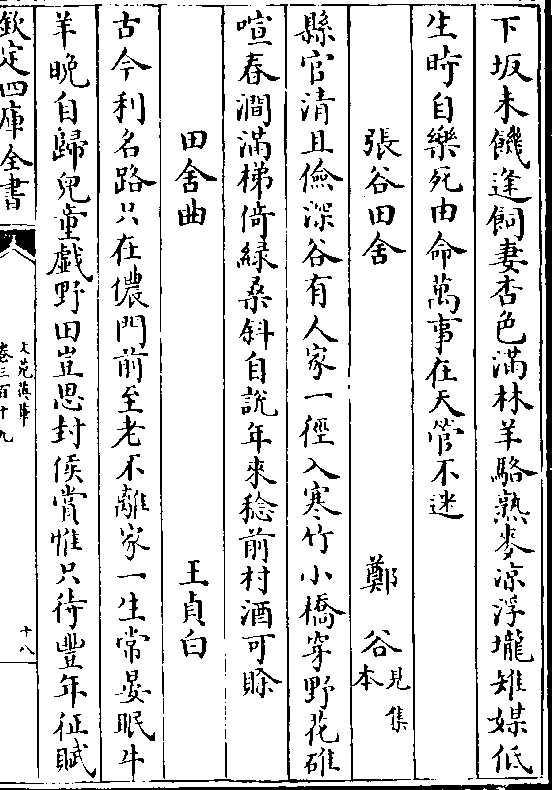 下坂未饑逢飼妻杏色滿林羊駱熟麥凉浮壠雉媒低
生時自樂死由命萬事在天管不迷
張谷田舍 鄭谷 見集本
縣官清且儉深谷有人家一徑入寒竹小橋穿野花碓
喧春澗滿梯倚緑桑斜自説年來稔前村酒可賒
田舍曲 王貞白
古今利名路只在儂門前至老不離家一生常晏眠牛
羊晚自歸兒童戲野田豈思封侯賞惟只待豐年征賦
欽定四庫全書
文苑英華
卷三百十九
十八